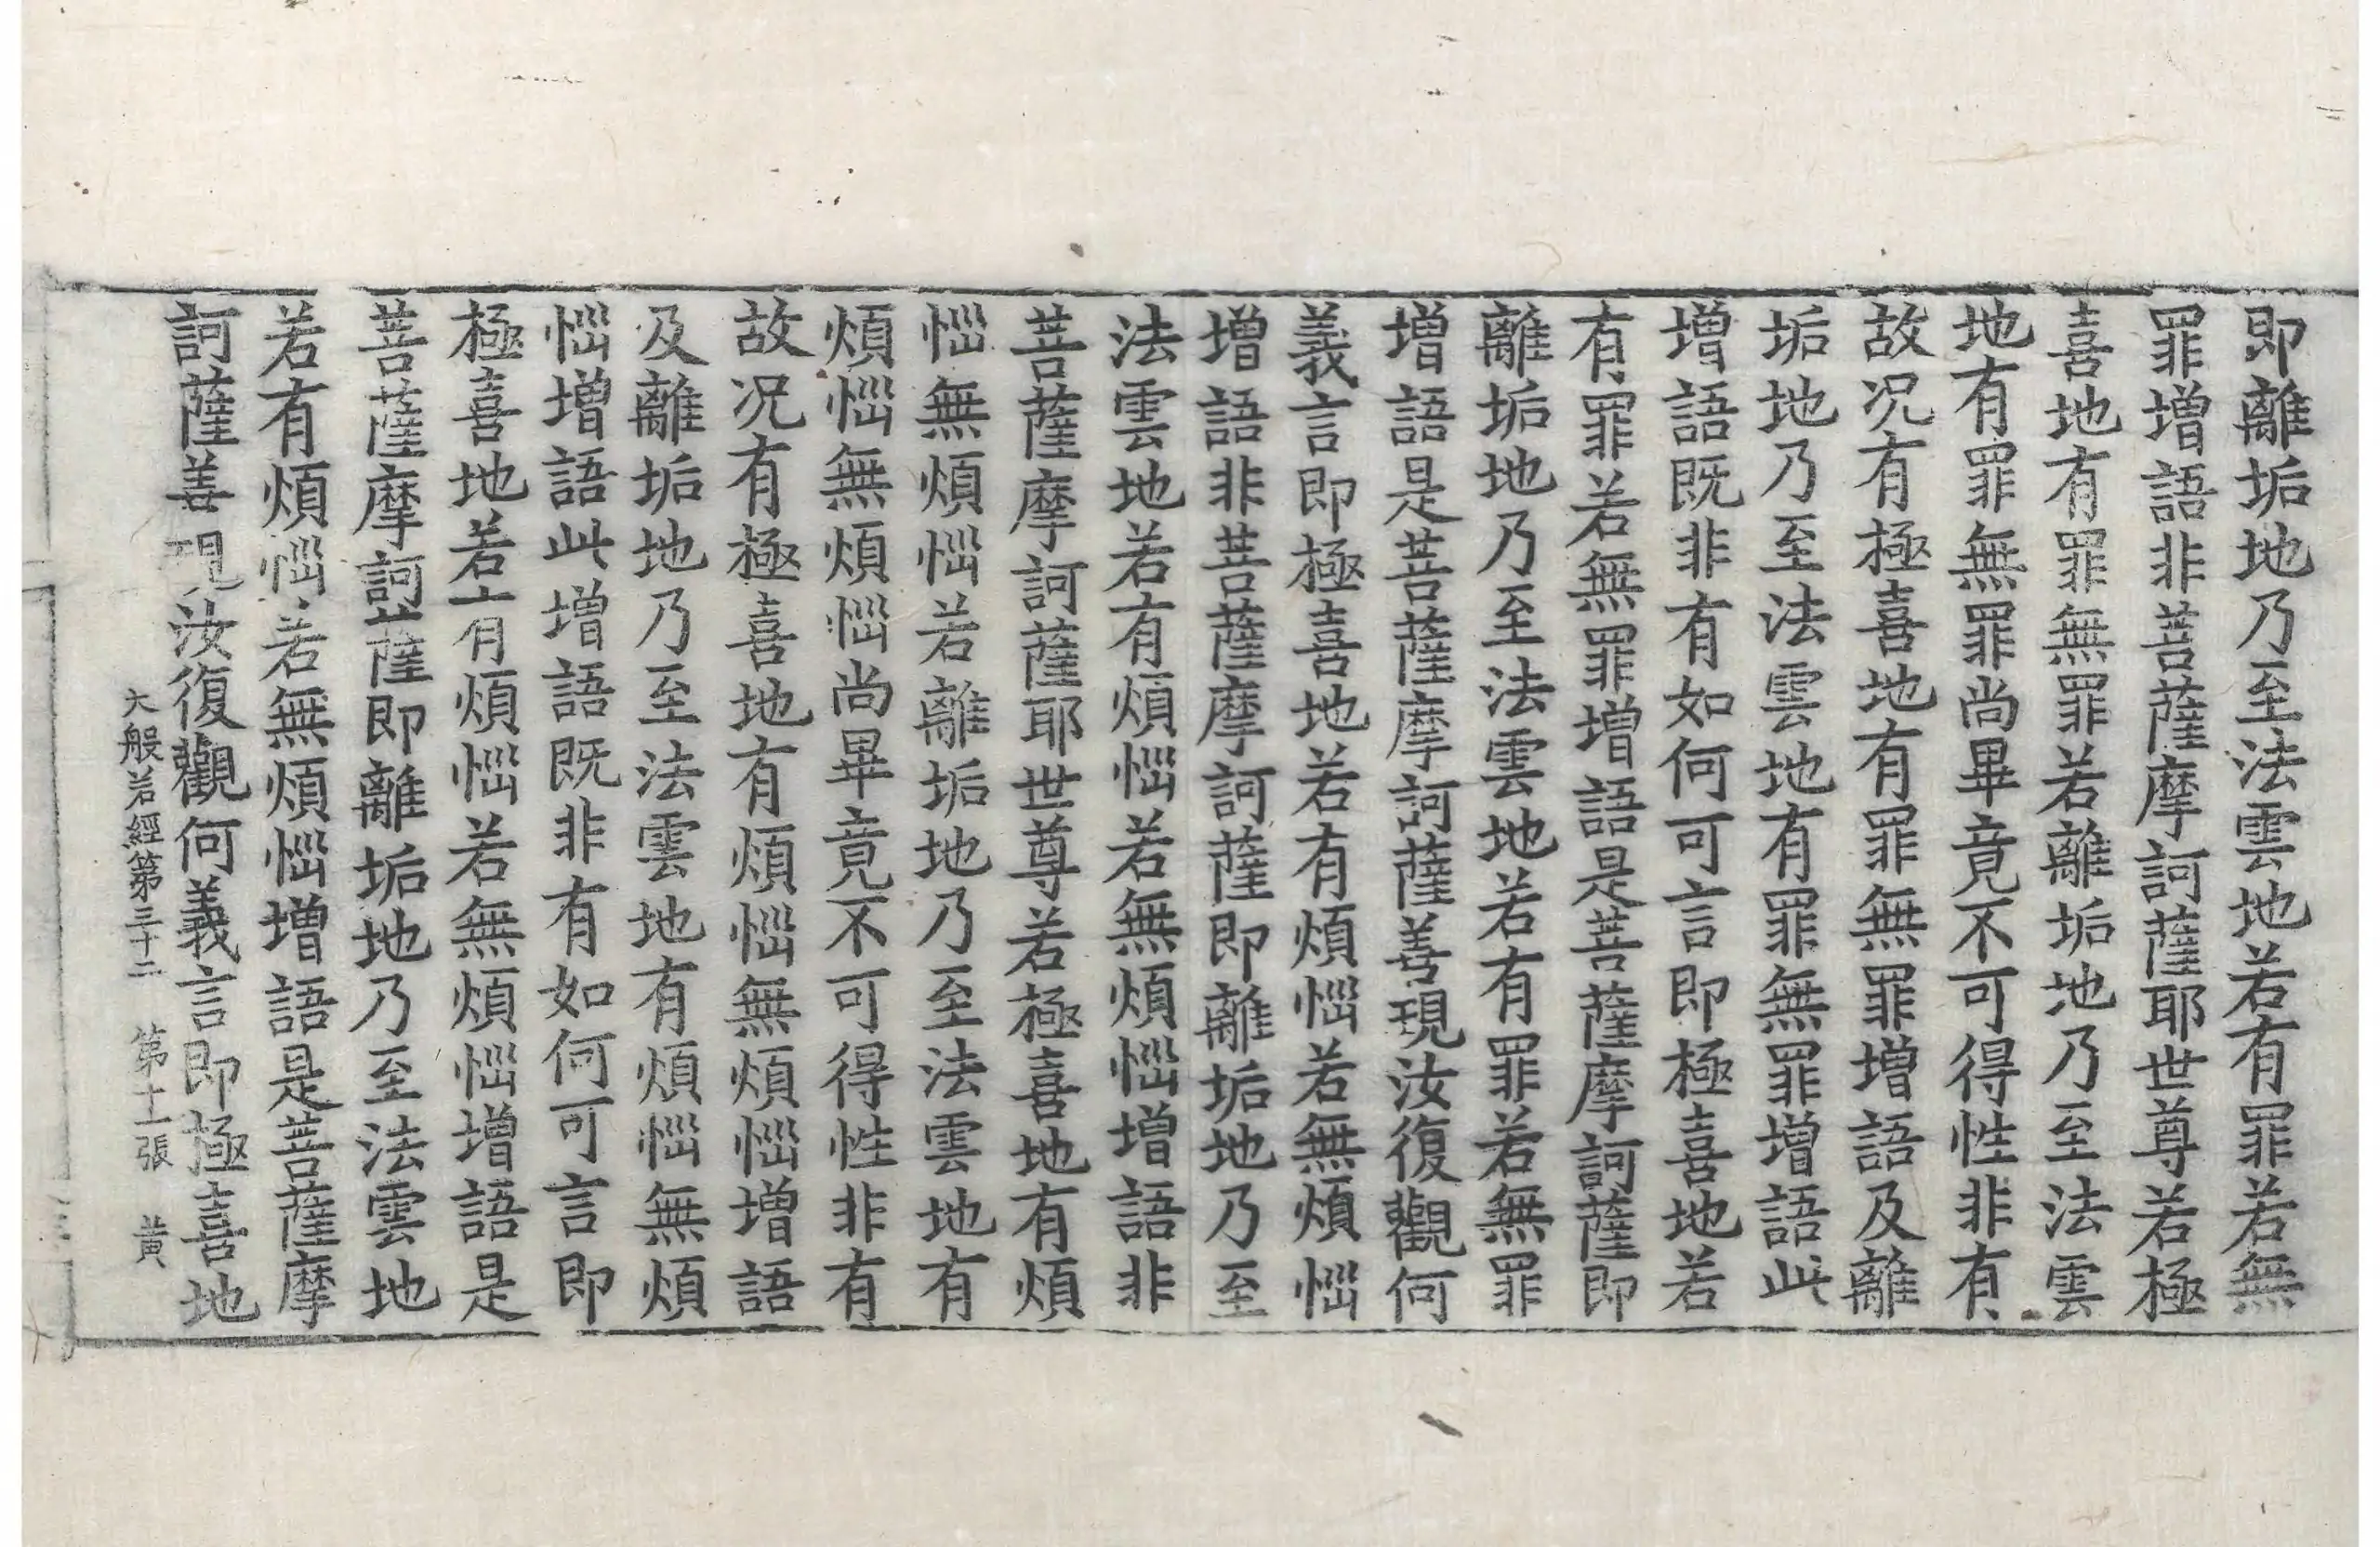 即離垢地乃至法雲地若有罪若無
罪增語非菩薩摩訶薩耶世尊若極
喜地有罪無罪若離垢地乃至法雲
地有罪無罪尚畢竟不可得性非有
故况有極喜地有罪無罪增語及離
垢地乃至法雲地有罪無罪增語此
增語既非有如何可言即極喜地若
有罪若無罪增語是菩薩摩訶薩即
離垢地乃至法雲地若有罪若無罪
增語是菩薩摩訶薩善現汝復觀何
義言即極喜地若有煩惱若無煩惱
增語非菩薩摩訶薩即離垢地乃至
法雲地若有煩惱若無煩惱增語非
菩薩摩訶薩耶世尊若極喜地有煩
惱無煩惱若離垢地乃至法雲地有
煩惱無煩惱尚畢竟不可得性非有
故况有極喜地有煩惱無煩惱增語
及離垢地乃至法雲地有煩惱無煩
惱增語此增語既非有如何可言即
極喜地若有煩惱若無煩惱增語是
菩薩摩訶薩即離垢地乃至法雲地
若有煩惱若無煩惱增語是菩薩摩
訶薩善現汝復觀何義言即極喜地
大般若經第三十二 第十二張 黃